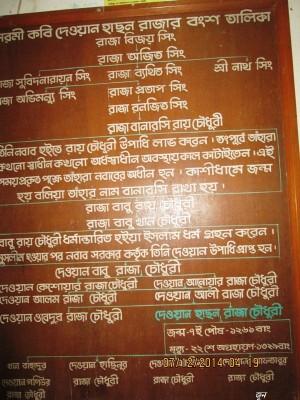 মরমী কবি দেওয়ান হাছন রাজার বংশ তালিকা
রাজা বিজয় সিং
রাজা অজিত সিং
রাজা সুবিদনারায়ন সিং রাজা ব্যথিত সিং শ্রী নাথ সিং
রাজা অভিমন্যু সিং রাজা প্রতাপ সিং
রাজা রনজিত সিং
রাজা বানারসি রায় চৌধুরী
তিনি নবাব হইতে রায় চৌধুরী উপাধি লাভ করেন । তৎপূর্বে তাঁহারা
কখনো স্বাধীন কখনো অর্ধস্বাধীন অবস্থায় কাল কাটাইতেন । এই
সময় প্রকৃত পক্ষে তাঁহারা নবাবের অধীন হন । কাশীধামে জন্ম
হয় বলিয়া তাঁহার নাম বানারসি রাখা হয় ।
রাজা বাবু রায় চৌধুরী
রাজা বাবু খান চৌধুরী
বাবু রায় চৌধুরী ধর্মান্তরিত হইয়া ইসলাম ধর্ম গ্রহন করেন ।
মুসলীম হওয়ার পর নবাব সরকার কর্তৃক তিনি দেওয়ান উপাধি প্রাপ্ত হন ।
দেওয়ান বাবু রাজা চৌধুরী
দেওয়ান কেশোয়ার রাজা চৌধুরী দেওয়ান আনোয়ার রাজা চৌধুরী
দেওয়ান আলম রাজা চৌধুরী দেওয়ান আলী রাজা চৌধুরী
দেওয়ান ওবেদুর রাজা চৌধুরী দেওয়ান হাছন রাজা চৌধুরী
জন্ম-৭ই পৌষ-১২৬১ বাং
মৃত্যু- ২২ শে অগ্রহায়ণ-১৩২৯বাং
খান বাহাদুর দেওয়ান হাছিনুর
দেওয়ান গণিউর রাজা চৌধুরী
রাজা চৌধুরী
07/12/2014